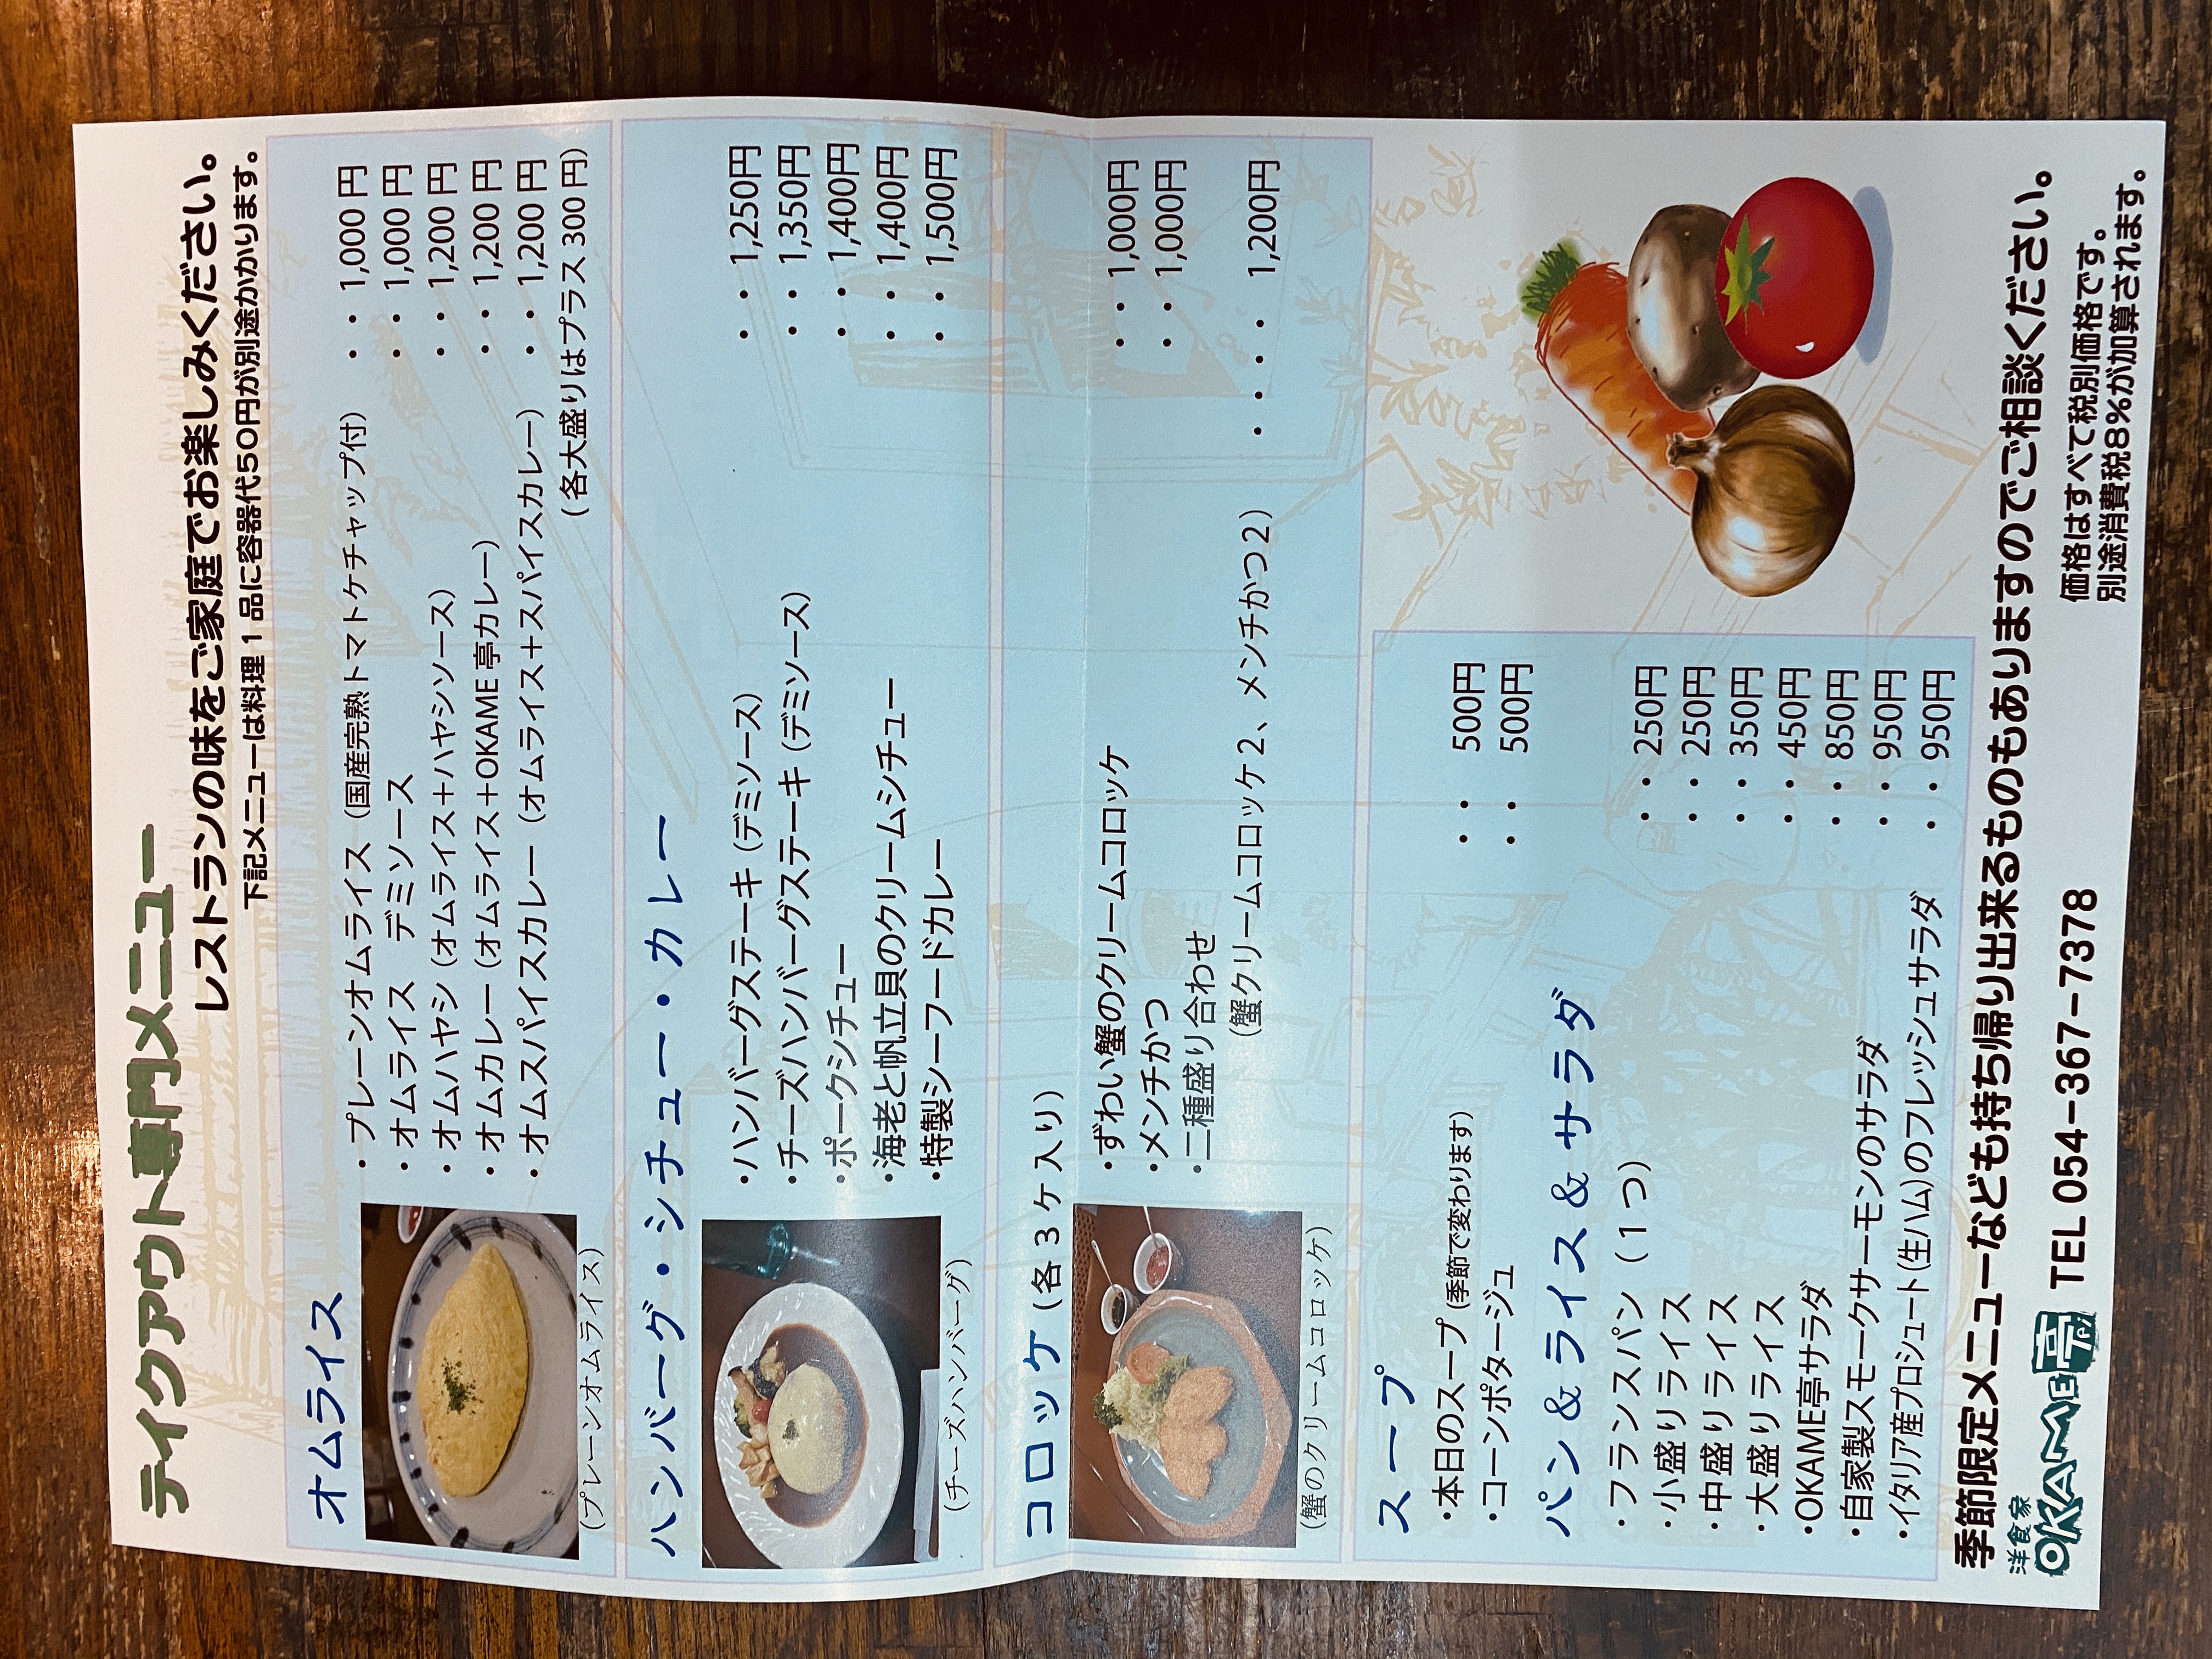 テイクアウト専門メニュー
レストランの味をご家庭でお楽しみください。
下記メニューは料理１品に容器代５０円が別途かかります。
オムライス
・プレーンオムライス（国産完熟トマトケチャップ付） ・・ 1,000 円
・オムライス　デミソース ・・ 1,000 円
・オムハヤシ（オムライス＋ハヤシソース） ・・ 1,200 円
・オムカレー（オムライス＋OKAME 亭カレー） ・・ 1,200 円
・オムスパイスカレー（オムライス＋スパイスカレー） ・・ 1,200 円
（各大盛りはプラス 300 円）
（プレーンオムライス）
ハンバーグ・シチュー・カレー
・ハンバーグステーキ（デミソース） ・・ 1,250円
・チーズハンバーグステーキ（デミソース） ・・ 1,350円
・ポークシチュー ・・ 1,400円
・海老と帆立貝のクリームシチュー ・・ 1,400円
・特製シーフードカレー ・・ 1,500円
（チーズハンバーグ）
コロッケ（各３ケ入り）
・ずわい蟹のクリームコロッケ ・・ 1,000円
・メンチかつ ・・ 1,000円
・二種盛り合わせ
（蟹クリームコロッケ２、メンチかつ２） ・・・・ 1,200円
（蟹のクリームコロッケ）
スープ
・本日のスープ（季節で変わります） ・・ 500円
・コーンポタージュ ・・ 500円
パン＆ライス＆サラダ
・フランスパン（１つ） ・・ 250円
・小盛りライス ・・ 250円
・中盛りライス ・・ 350円
・大盛りライス ・・ 450円
・OKAME亭サラダ ・・ 850円
・自家製スモークサーモンのサラダ ・・ 950円
・イタリア産プロシュート(生ハム)のフレッシュサラダ ・・ 950円
季節限定メニューなども持ち帰り出来るものもありますのでご相談ください。
洋食家
OKAME亭 TEL 054-367-7378
価格はすべて税別価格です。
別途消費税８％が加算されます。